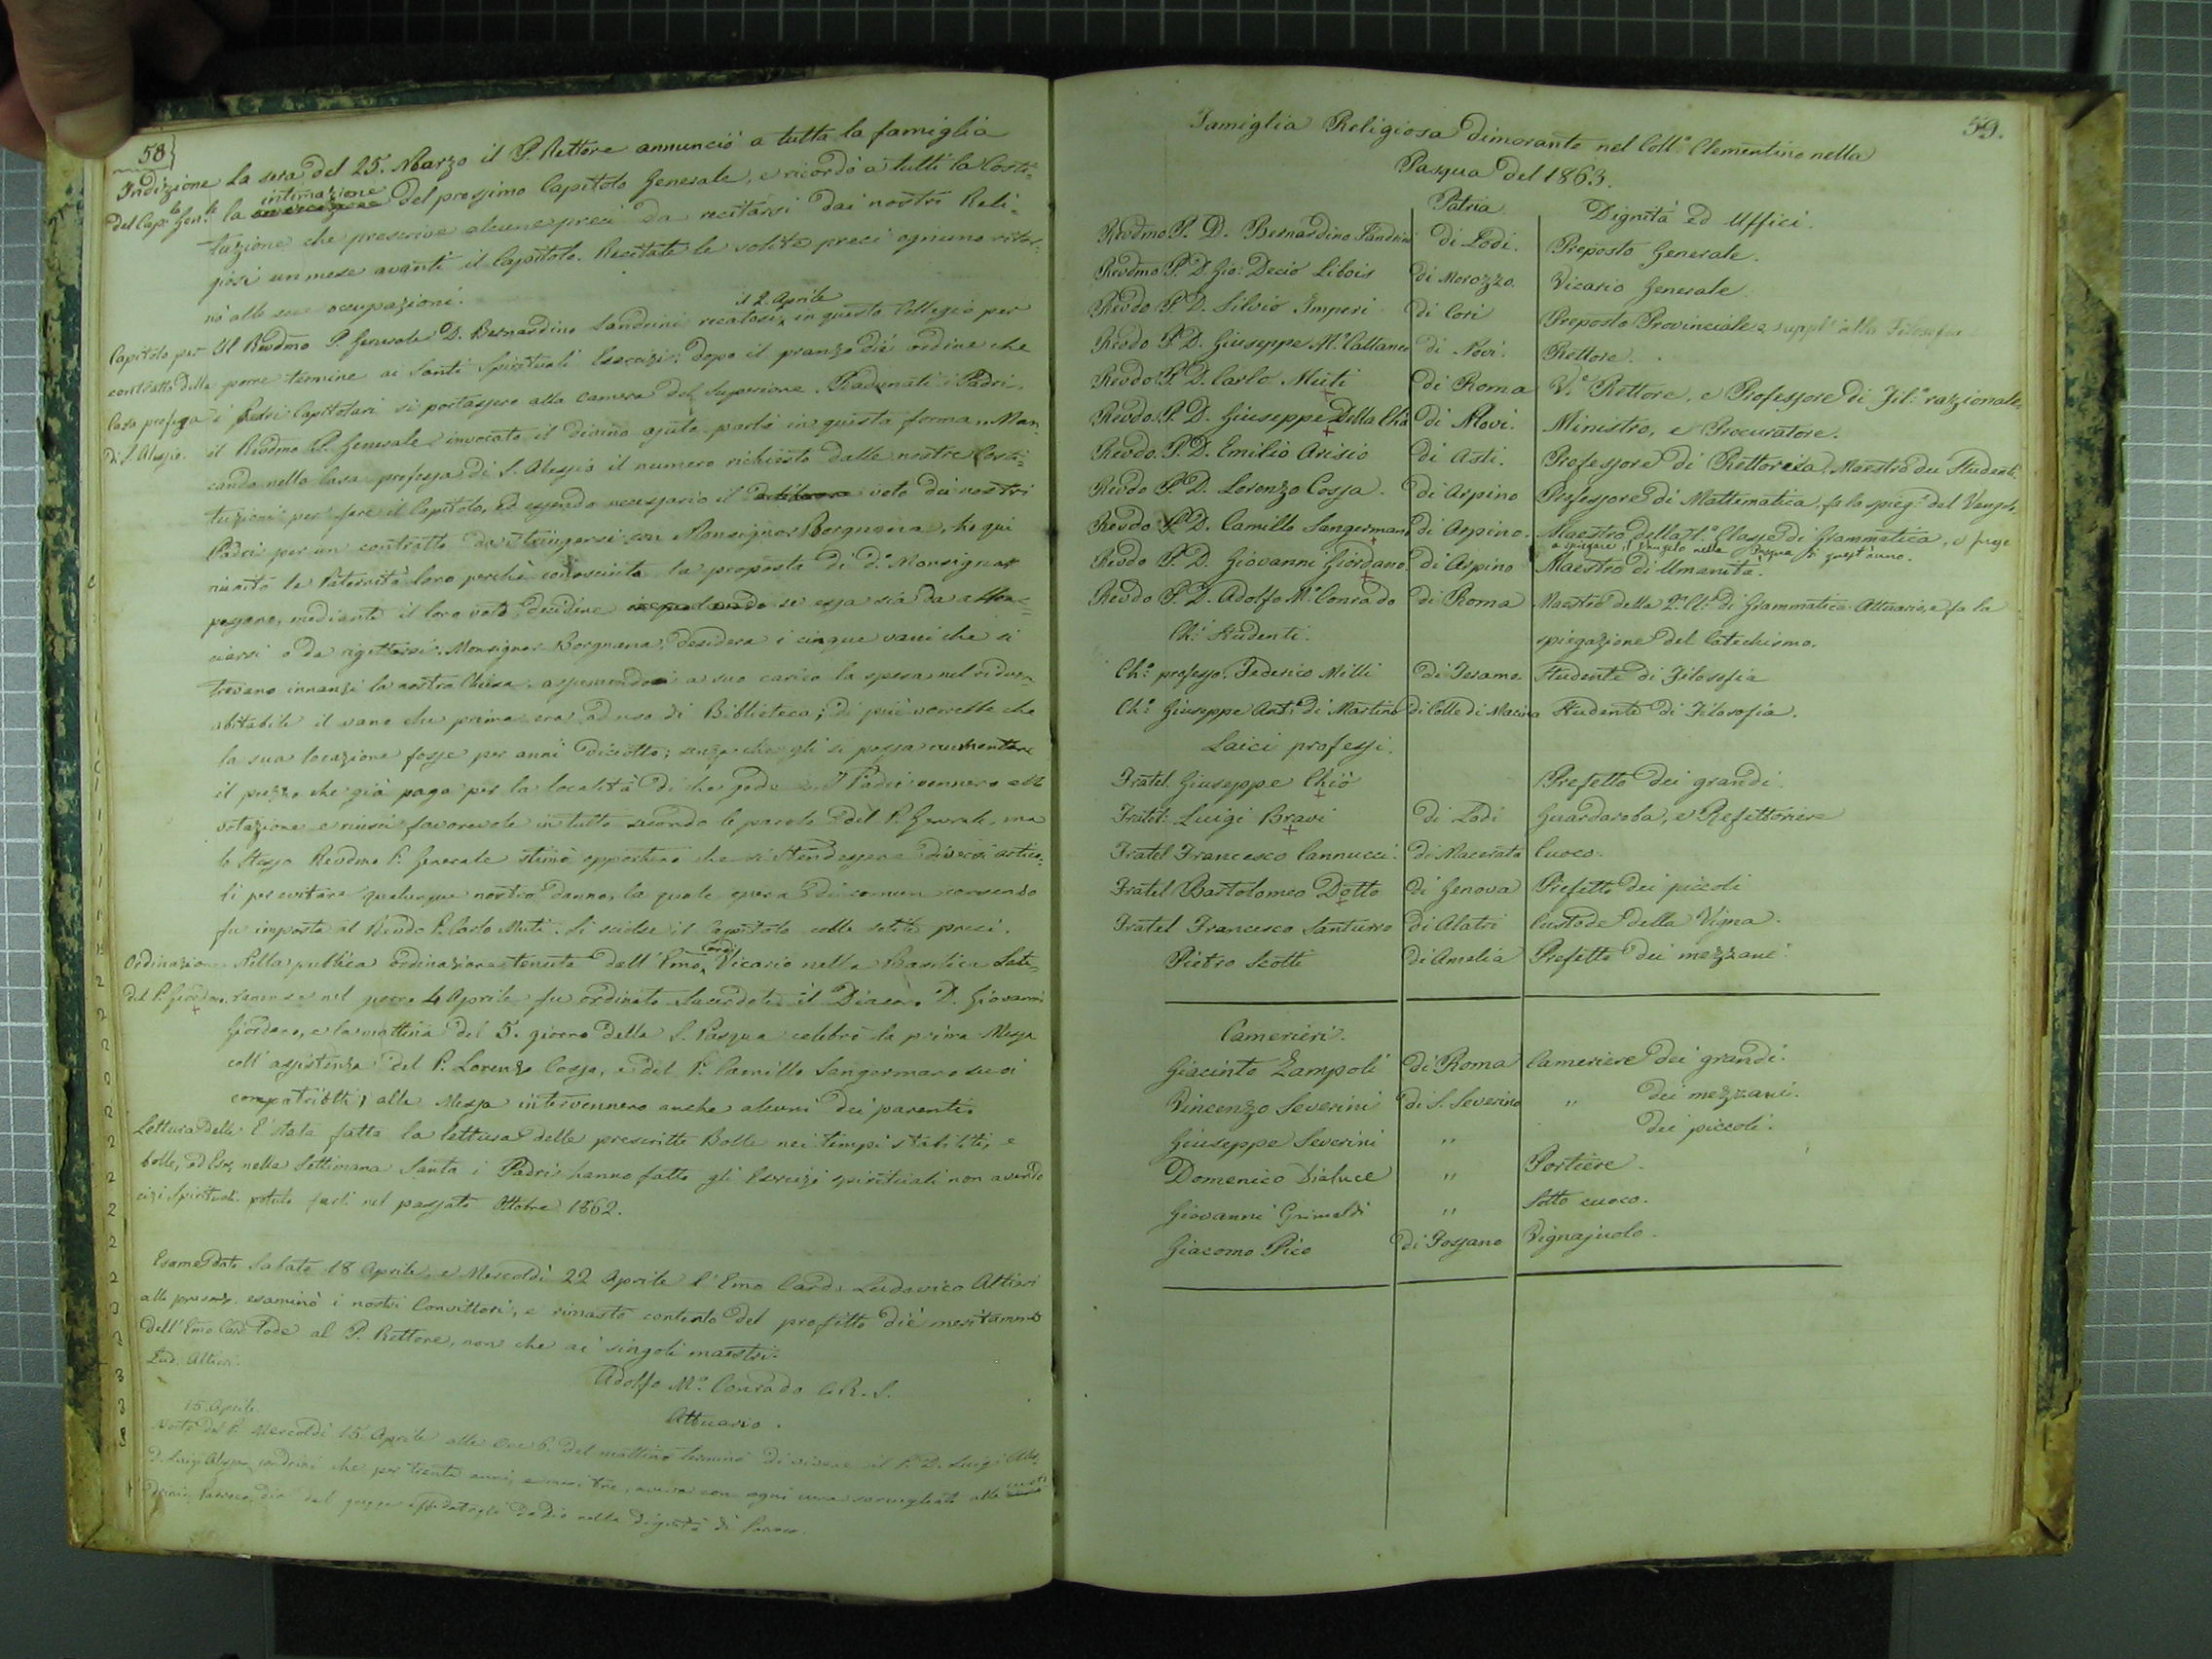 58
Indizione del Cap.lo Gen.le
La sera del 25. Marzo il P. Rettore annunciò a tutta la famiglia
la intimazione del prossimo Capitolo Generale, e ricordò a tutti la Costi=
tuzione che prescrive alcune preci da recitarsi dai nostri Reli=
giosi un mese avanti il Capitolo. Recitate le solite preci ognuno ritor=
nò alle sue occupazioni.
Capitolo per contratto della Casa professa di S. Alessio.
Il Revdmo P. Generale D. Bernardino Sandrini recatosi il 2. Aprile in questo Collegio per
porre termine ai Santi Spirituali Esercizi: dopo il pranzo diè ordine che
i Padri Capitolari si portassero alla camera del Superiore. Radunati i Padri,
il Revdmo P. Generale invocato il divino ajuto parlò in questa forma. Man=
cando nella Casa professa di S. Alessio il numero richiesto dalle nostre Costi=
tuzioni per fare il Capitolo, ed essendo necessario il voto dei nostri
Padri per un contratto da stringersi con Monsignor Borgnana, ho qui
riunito le Paternità loro perchè conosciuta la proposta di d.o Monsignor
possano, mediante il loro voto, decidere se essa sia da abbrac=
ciarsi o da rigettarsi. Monsignor Borgnana, desidera i cinque vani che si
trovano innanzi la nostra Chiesa, assumendo a suo carico la spesa nel ridurre
abitabile il vano che prima era ad uso di Biblioteca; di più vorrebbe che
la sua locazione fosse per anni diciotto; senza che gli si possa aumentare
il prezzo che già paga per la località di che gode. I Padri vennero alla
votazione e riuscì favorevole in tutto secondo le parole del P. Generale, ma
lo stesso Revdmo P. Generale stimò opportuno che si stendessero diversi artico=
li per evitare qualunque nostro danno, la quale opera di comun consenso
fu imposta al Revdo P. Carlo Muti. Si sciolse il Capitolo colle solite preci.
Ordinazione del P. Giordano.
Nella pubblica ordinazione tenuta dall'Emo Card. Vicario nella Basilica Late=
ranense nel giorno 4 Aprile fu ordinato Sacerdote il Diacono D. Giovanni
Giordano, e la mattina del 5. giorno della S. Pasqua celebrò la prima Messa
coll'assistenza del P. Lorenzo Cossa, e del P. Camillo Sangermano suoi
compatriotti; alla Messa intervennero anche alcuni dei parenti.
Lettura delle bolle, ed Eser=cizi Spirituali.
È stata fatta la lettura delle prescritte Bolle nei tempi stabiliti, e
nella Settimana Santa i Padri hanno fatto gli Esercizi spirituali non avendo
potuto farli nel passato Ottobre 1862.
Esame dato alla presenza dell'Emo Card. Lud. Altieri.
Sabato 18 Aprile, e Mercoldì 22 Aprile l'Emo Card. Ludovico Altieri
esaminò i nostri Convittori, e rimasto contento del profitto diè meritamente
lode al P. Rettore, non che ai singoli maestri.
Adolfo M.a Conrado C.R.S.
Attuario.
15. Aprile
Morte del P. D. Luigi Alessandrini Parroco
Mercoldì 15 Aprile alle ore 6. del mattino terminò di vivere il P. D. Luigi Ales=
sandrini che per trenta anni, e mesi tre, aveva con ogni cura sorvegliato alla custo
dia del gregge affidatogli da Dio nella dignità di Parroco.
59.
Famiglia Religiosa dimorante nel Coll.o Clementino nella
Pasqua del 1863.
Patria Dignità ed Uffici.
Revdmo P. D. Bernardino Sandrini di Lodi. Preposto Generale.
Revdmo P. D. Gio: Decio Libois di Morozzo. Vicario Generale
Revdo P. D. Silvio Imperi di Cori Preposto Provinciale e suppl.e alla Filosofia
Revdo P. D. Giuseppe M.a Cattaneo di Novi. Rettore.
Revdo P. D. Carlo Muti di Roma V.e Rettore, e Professore di Fil.a razionale.
Revdo P. D. Giuseppe Della Chà di Novi. Ministro, e Procuratore.
Revdo P. D. Emilio Arisio di Asti. Professore di Rettorica, Maestro dei Studenti.
Revdo P. D. Lorenzo Cossa. di Arpino Professore di Mattematica, fa la spieg.e del Vangelo.
Revdo P. D. Camillo Sangermano di Arpino. Maestro della 1.a Classe di Grammatica, e
a spiegare il Vangelo nella Pasqua di quest'anno.
Revdo P. D. Giovanni Giordano. di Arpino Maestro di Umanità.
Revdo P. D. Adolfo M.a Conrado di Roma Maestro della 2.a Cl.e di Grammatica Attuario, e fa la
spiegazione del Catechismo.
Ch.i Studenti.
Ch.o professo. Federico Milli di Teramo. Studente di Filosofia
Ch.o Giuseppe Ant.o di Martino di Colle di Macina Studente di Filosofia.
Laici professi.
Fratel. Giuseppe Chiò Prefetto dei grandi.
Fratel: Luigi Bravi di Lodi Guardaroba, e Refettoriere
Fratel Francesco Cannucci. di Macerata Cuoco.
Fratel Bartolomeo Dotto di Genova Prefetto dei piccoli
Fratel Francesco Santurro di Alatri Custode della Vigna.
Pietro Scotti di Amelia Prefetto dei mezzani.
Camerieri.
Giacinto Zampoli di Roma Cameriere dei grandi.
Vincenzo Severini di S. Severino " dei mezzani.
Giuseppe Severini " dei piccoli.
Domenico Dialuce " Portiere.
Giovanni Grimaldi " Sotto cuoco.
Giacomo Pico di Fossano Vignajuolo.